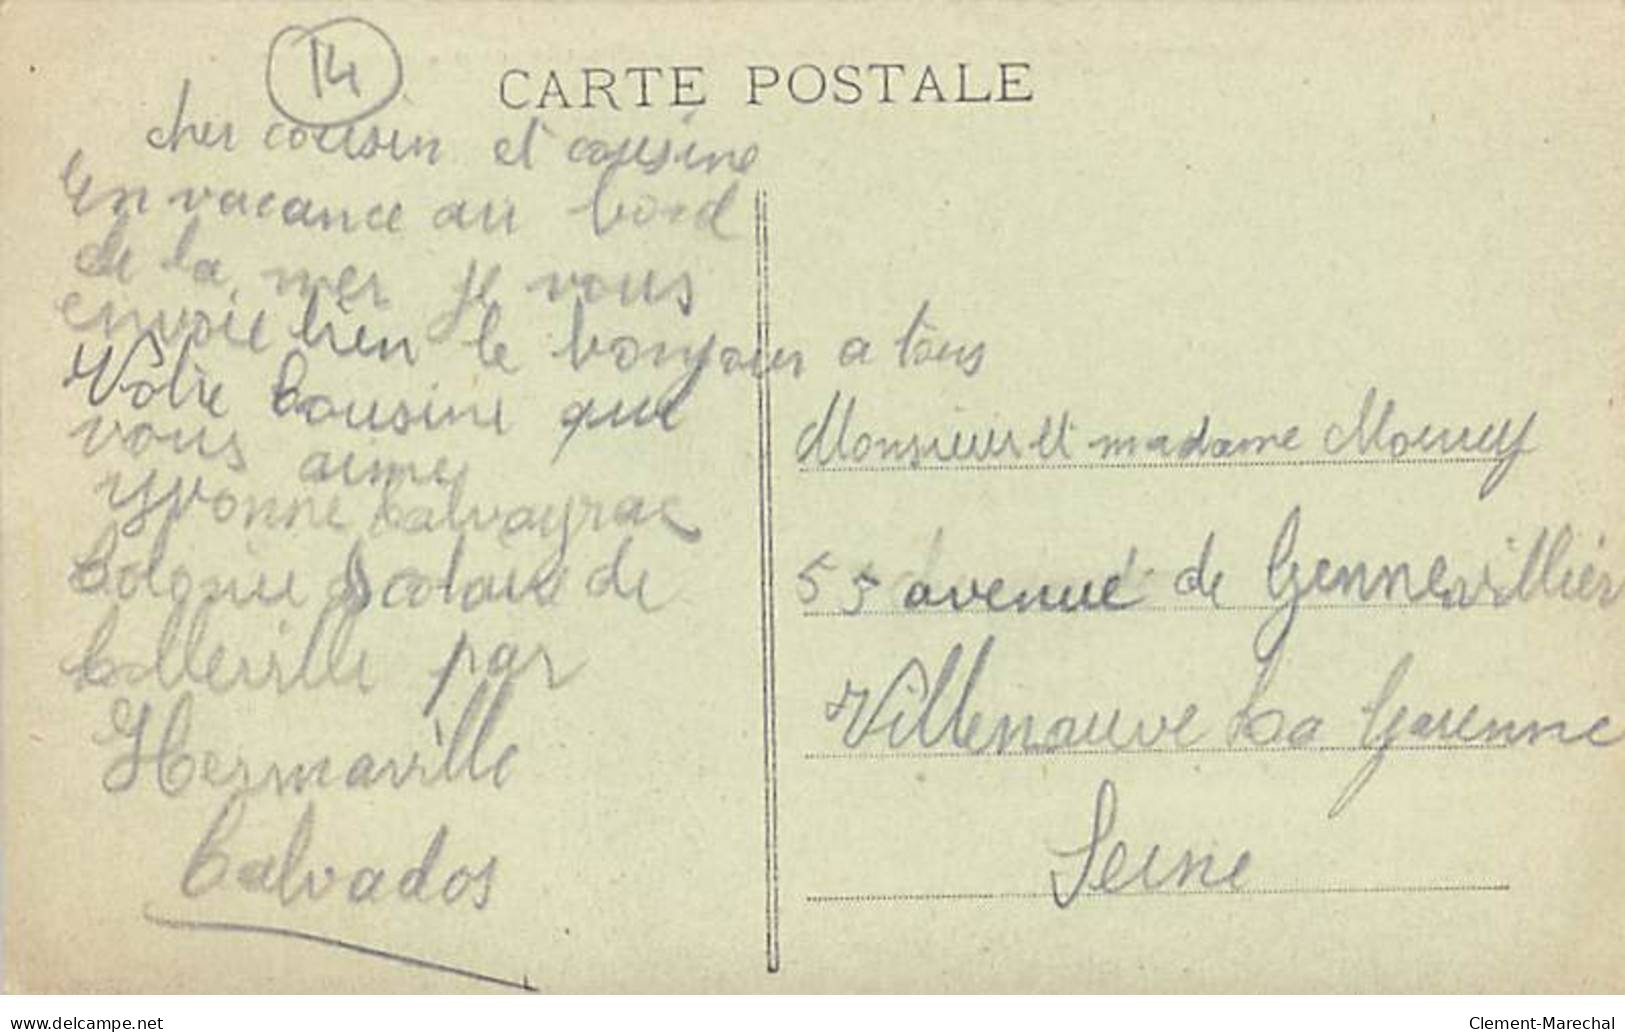 14
CARTE POSTALE
cher cousin et cousine
En vacance au bord
de la mer je vous
envoie bien le bonjour a tous
Votre Cousine qui
vous aime
Yvonne Calvayrac
Colonie Scolaire de
Colleville par
Hermaville
Calvados
Monsieur et madame
55 avenue de Gennevillier
Villeneuve La Garenne
Seine
delcampe.net
Clement-Marechal